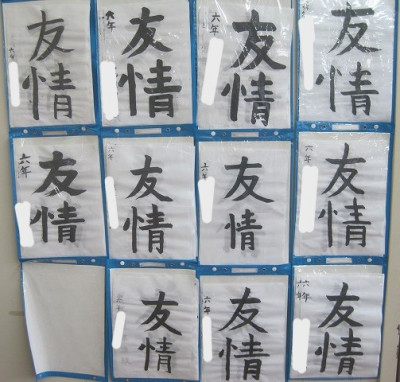 友情
六年
友情
六年
友情
六年
友情
六年
友情
六年
友情
六年
友情
六年
友情
六年
友情
友情
六年
友情
六年
友情